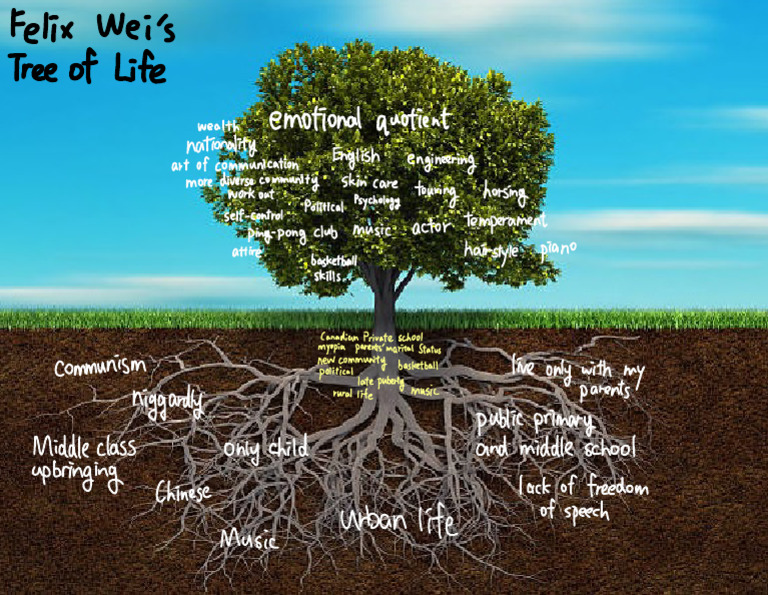 Felix Wei's
Tree of Life
emotional quotient
wealth
nationality
English
engineering
art of communication
more diverse community
skin care
touring
horsing
work out
Political
Psychology
self-control
temperament
ping-pong club
music
actor
attire
hairstyle
piano
basketball
skills
Canadian Private school
myopia
parents' marital status
new community
basketball
political
late puberty
rural life
music
Communism
live only with my
parents
niggardly
public primary
and middle school
Middle class
upbringing
only child
Chinese
lack of freedom
of speech
Urban life
Music